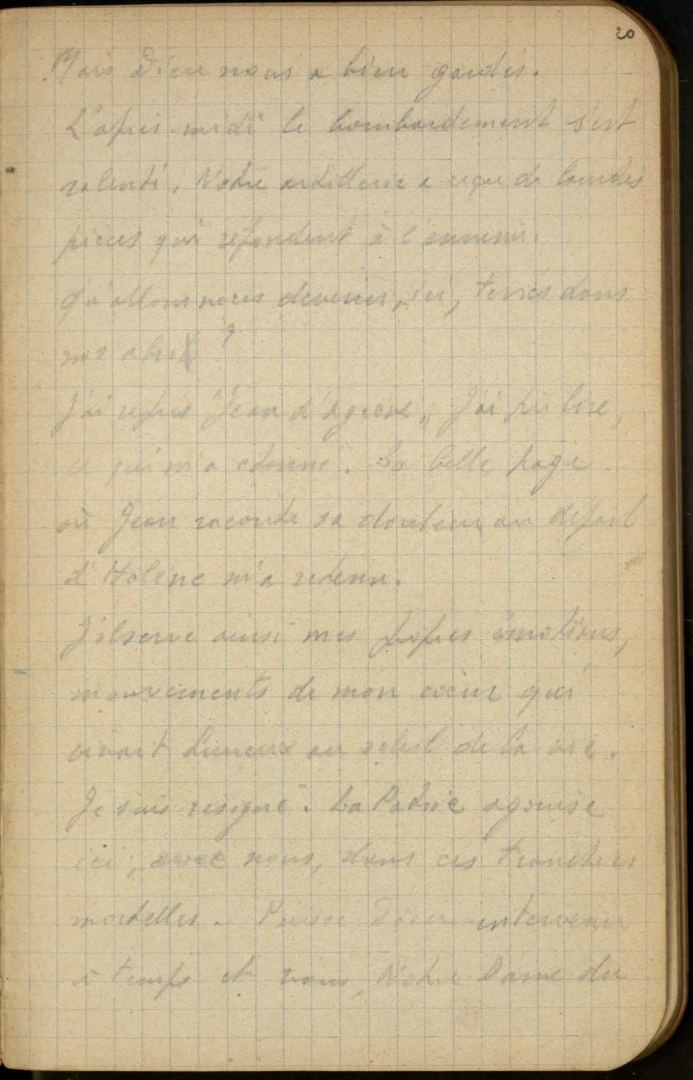 20
Mais Dieu nous a bien gardés.
L'après-midi le bombardement s'est
ralenti. Notre artillerie a reçu de lourdes
pièces qui répondent à l'ennemi.
Qu'allons nous devenir, ici, terrés dans
nos abris ?
J'ai repris "Jean d'Agrève", j'ai pu lire,
ce qui m'a étonné. La belle page
où Jean raconte sa douleur au départ
d'Hélène m'a retenu.
J'observe ainsi mes propres émotions,
mouvements de mon cœur qui
vivait heureux au soleil de la vie.
Je suis résigné. La Patrie agonise
ici, avec nous, dans ces tranchées
mortelles. Puisse Dieu intervenir
à temps et vous, Notre Dame du